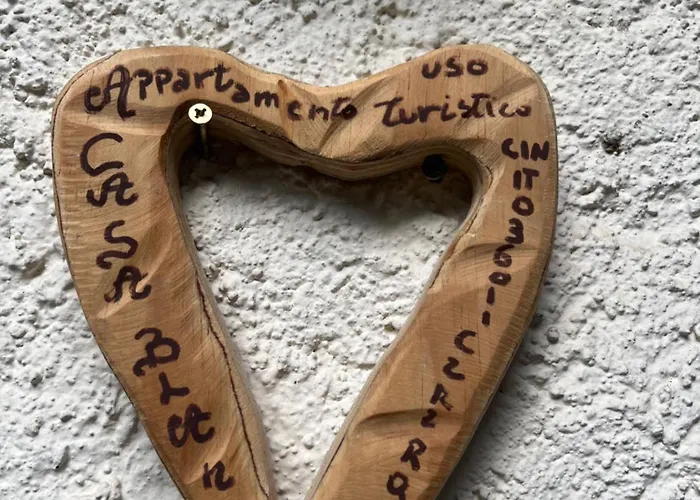 Appartamento uso Turistico
CASA BLAn
CIN
IT036011C2R2RQ